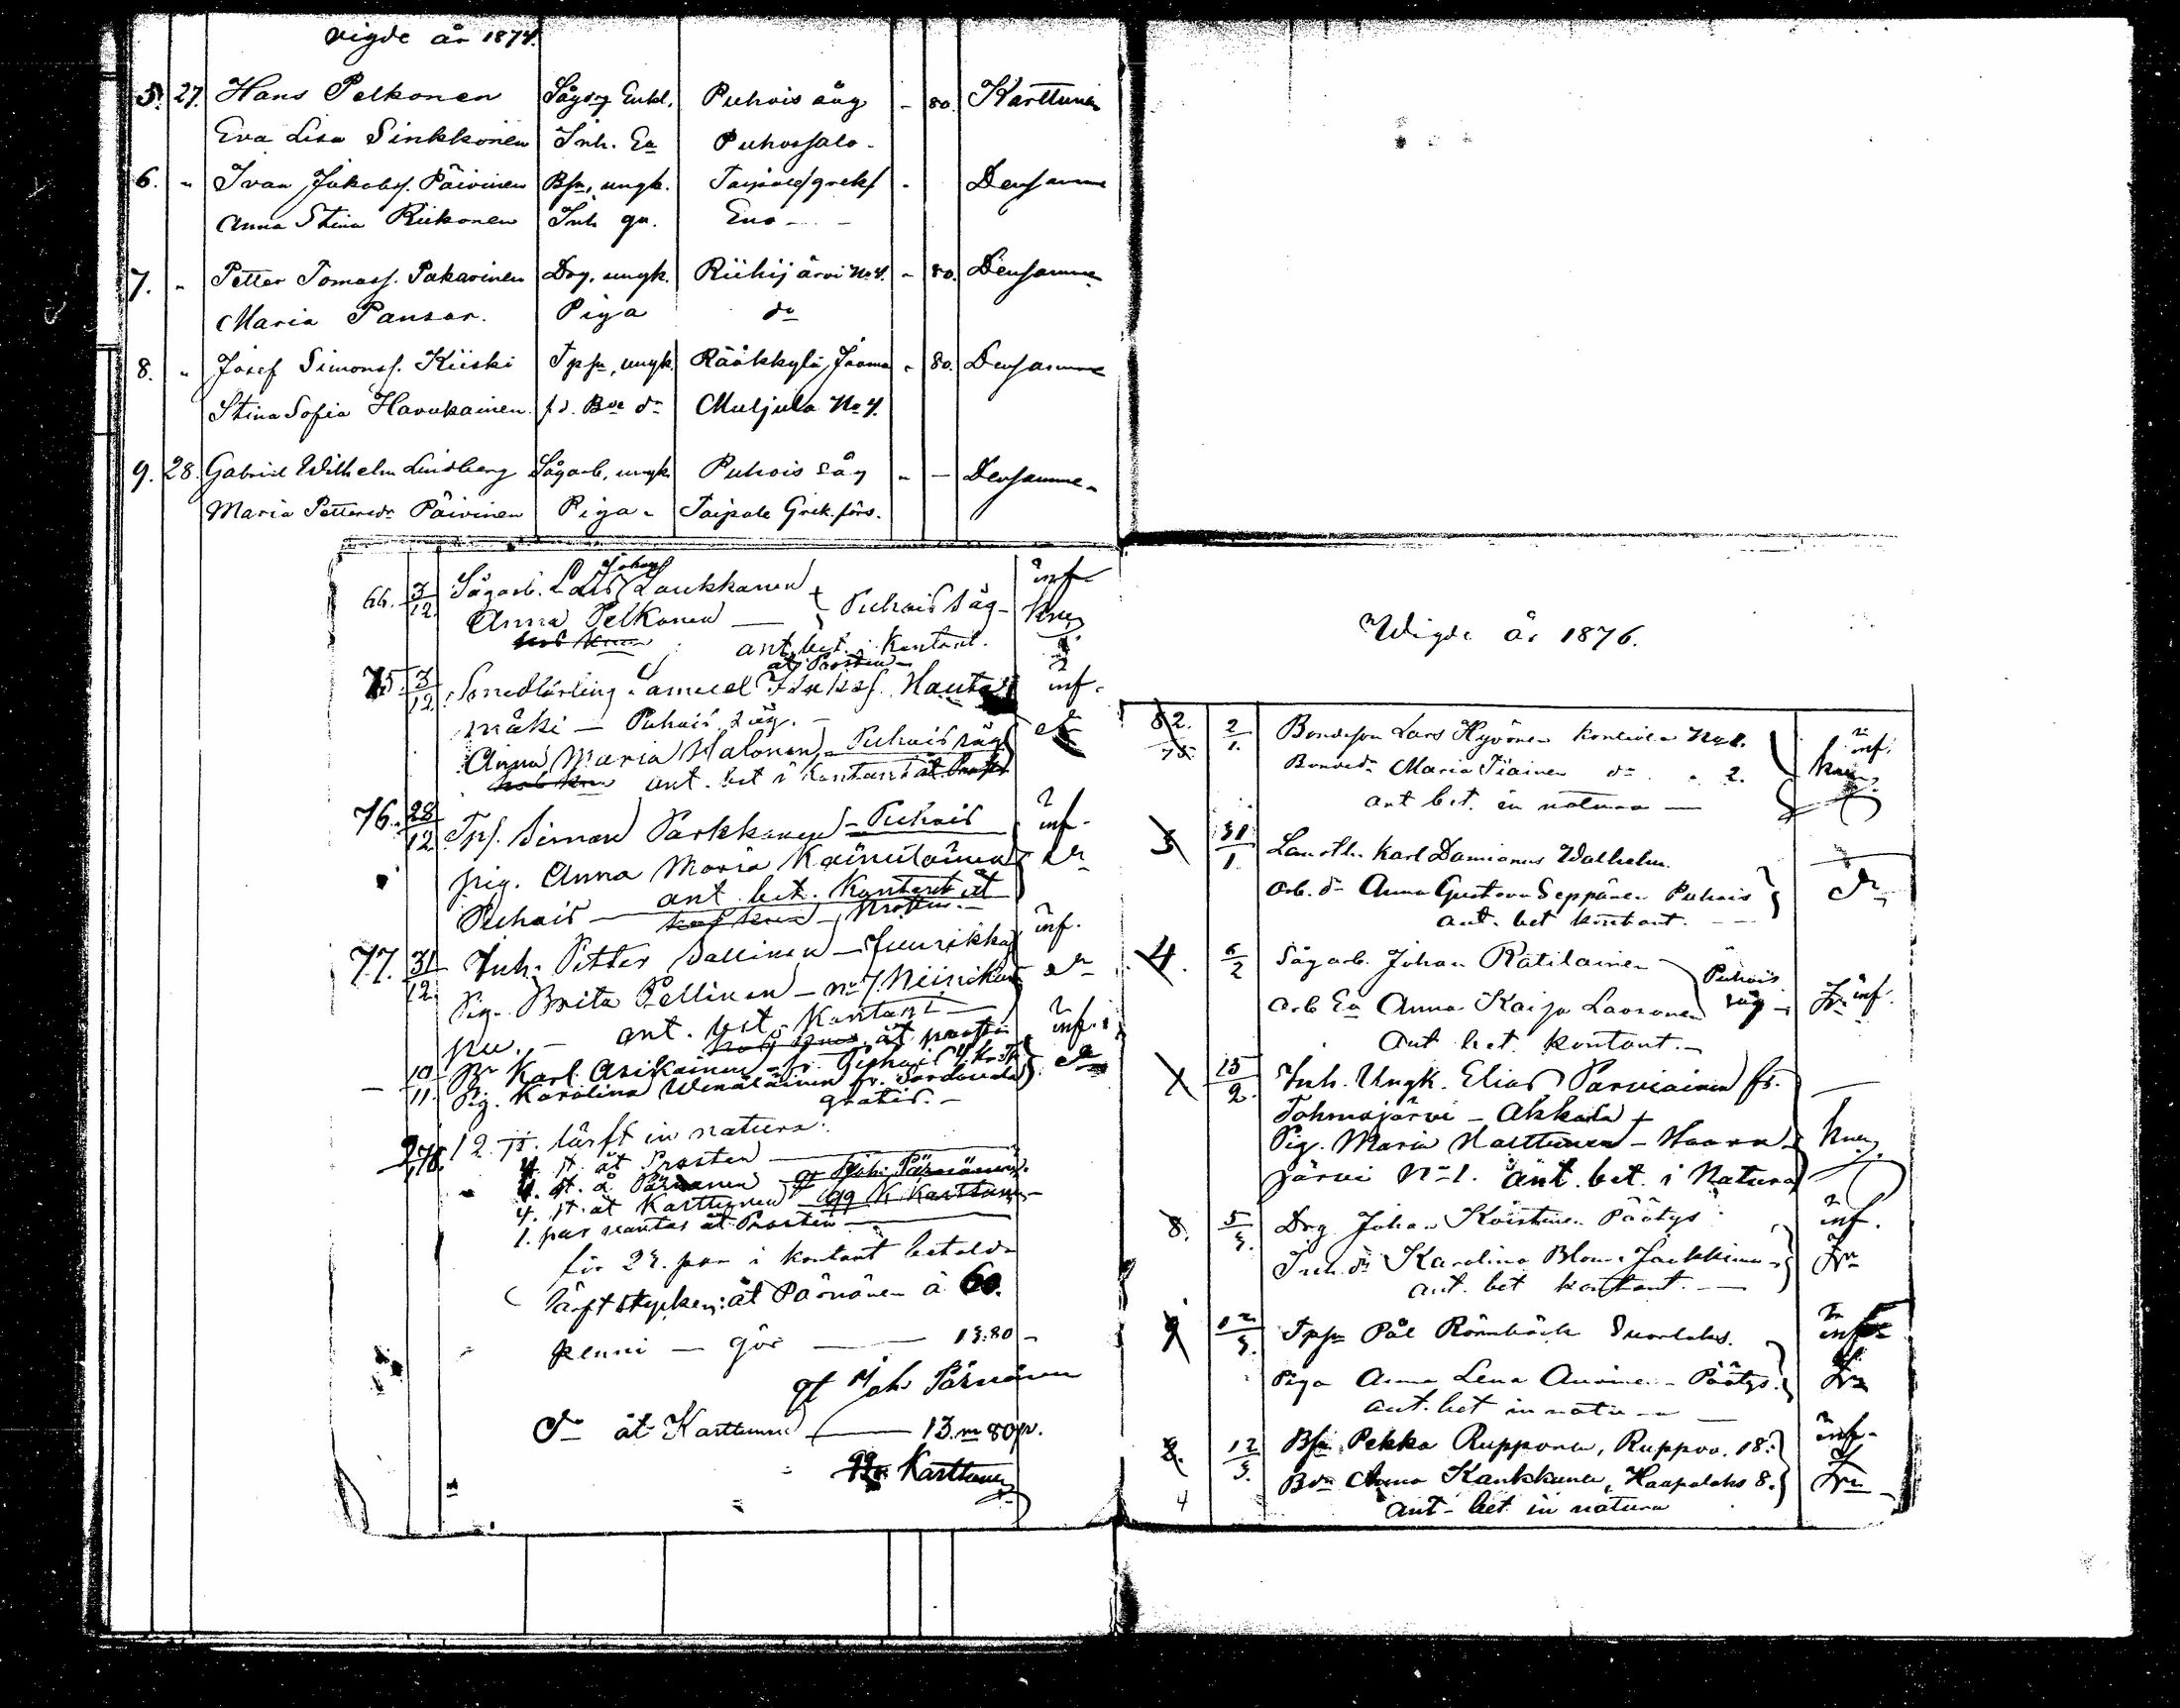 vigde år 1874.
5. 27. Hans Pelkonen Sågdrg Enkl. Puhois såg - 80. Karttunen
Eva Lisa Sinkkonen Inh. Ea Puhossalo -
6. " Ivan Jakobss. Päivinen Bsn, ungk. Taipale grek - Densamme
Anna Stina Riikonen Inh qv. Eno -
7. " Petter Tomass. Pakarinen Drg, ungk. Riihijärvi No 4. - 80. Densamme
Maria Pansar. Piga do
8. " Josef Simonss. Kiiski Tpsn, ungk. Rääkkylä, Jaama - 80. Densamme
Stina Sofia Havukainen fd. Bde dr Muljula No 4.
9. 28. Gabriel Wilhelm Lindberg Sågarb, ungk. Puhois såg " - Densamme
Maria Pettersdr Päivinen Piga - Taipale Grek. förs.
66. 3/12 Sågarb. Lars Johans Laukkanen inf
Anna Pelkonen — Puhois såg -
ant. bet. i Kontant.
åt Prosten -
75. 3/12. Smedlärling Samuel Hauta inf.
mäki — Puhois såg. -
Anna Maria Halonen Puhois såg dr
ant. bet i Kontant åt Prosten
76. 28/12. Tps. Simon Parkkonen - Puhois inf.
pig. Anna Maria Kainulainen dr
Puhois — ant. bet. Kontant åt
Prosten. -
77. 31/12. Inh. Petter Sallinen — Juurikka inf.
Pig. Brita Pellinen - No 7 dr
ant. bet. Kontant
åt prosten inf.
- 10/11. Karl Asikainen - fr. Puhois dr
Pig. Karolina Wenäläinen fr. Sordavala
gratis. -
278. 12. st. lärft in natura.
4 st. åt Prosten
4. st. å Pärnänen qt Joh. Pärnänen.
4. st. åt Karttunen qq K Karttunen
1. par vantar åt Prosten
för 23. par i kontant betalda
lärftstycken: åt Pärnänen à 60.
penni — gör — 13.80 -
qt Joh Pärnänen
do åt Karttunen — 13. m 80 p.
Karttunen
Wigde år 1876.
82./75. 2/1. Bondeson Lars Hyvönen No 8. inf.
Bondedr Maria Tiainen do " 2.
ant bet. in natura —
3 31/1. Karl Damianus Walhelm
Arb. dr Anna Gustava Seppänen Puhois dr
ant. bet kontant. —
4. 6/2 Sågarb. Johan Ratilainen Puhois
Arb Ea Anna Kaija Laasonen såg - inf.
Ant bet. kontant. -
15/2. Inh. Ungk. Elias Parviainen fr. —
Tohmajärvi - Akkala
Pig. Maria Karttunen - Haara-
järvi No 1. ant. bet. i Natura
8. 5/3. Drg Johan Koistinen Päätys inf.
Inh. dr Karolina Blom
ant. bet kontant. —
9 12/3. Tpsn Pål Rönnbäck Suorlaks. inf
Piga Anna Lena Auvinen - Päätys.
ant. bet in natu
12/3. Bsn Pekka Rupponen, Ruppov. 18. inf.
Bdr Anna Kankkunen, Haapalaks 8.
4 ant - bet in natura